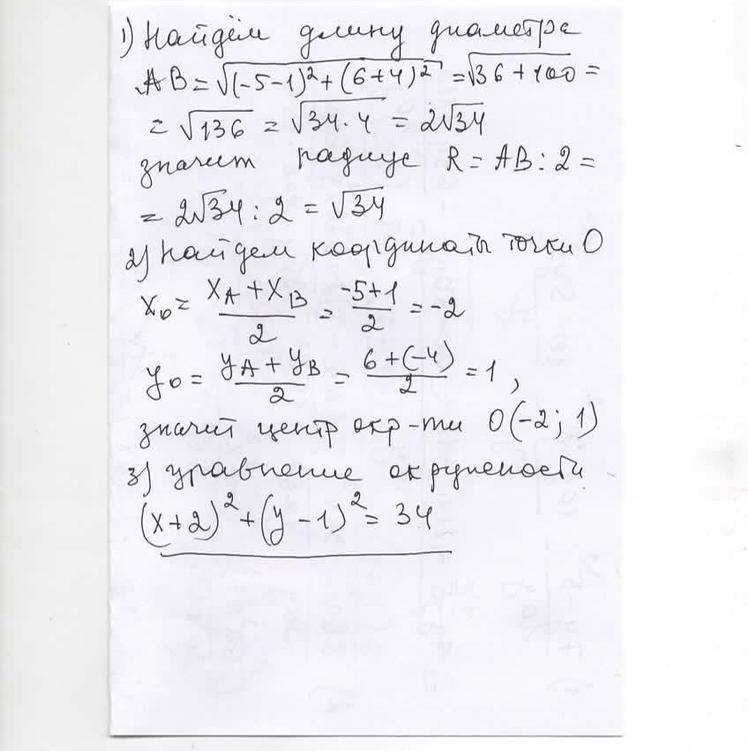 1) Найдём длину диаметра
AB=√((-5-1)²+(6+4)²)=√(36+100)=
=√136=√(34·4)=2√34
значит радиус R=AB:2=
=2√34:2=√34
2) Найдем координаты точки O
x₀=(x_A+x_B)/2=(-5+1)/2=-2
y₀=(y_A+y_B)/2=(6+(-4))/2=1,
значит центр окр-ти O(-2;1)
3) уравнение окружности
(x+2)²+(y-1)²=34